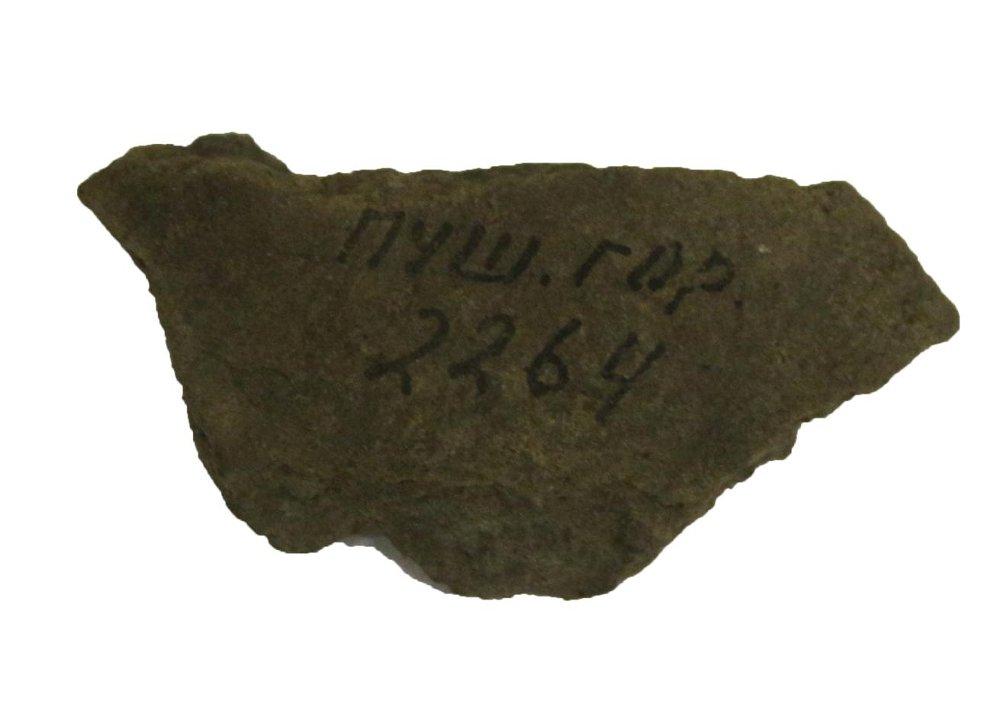 ПУШ. ГОР.
2264